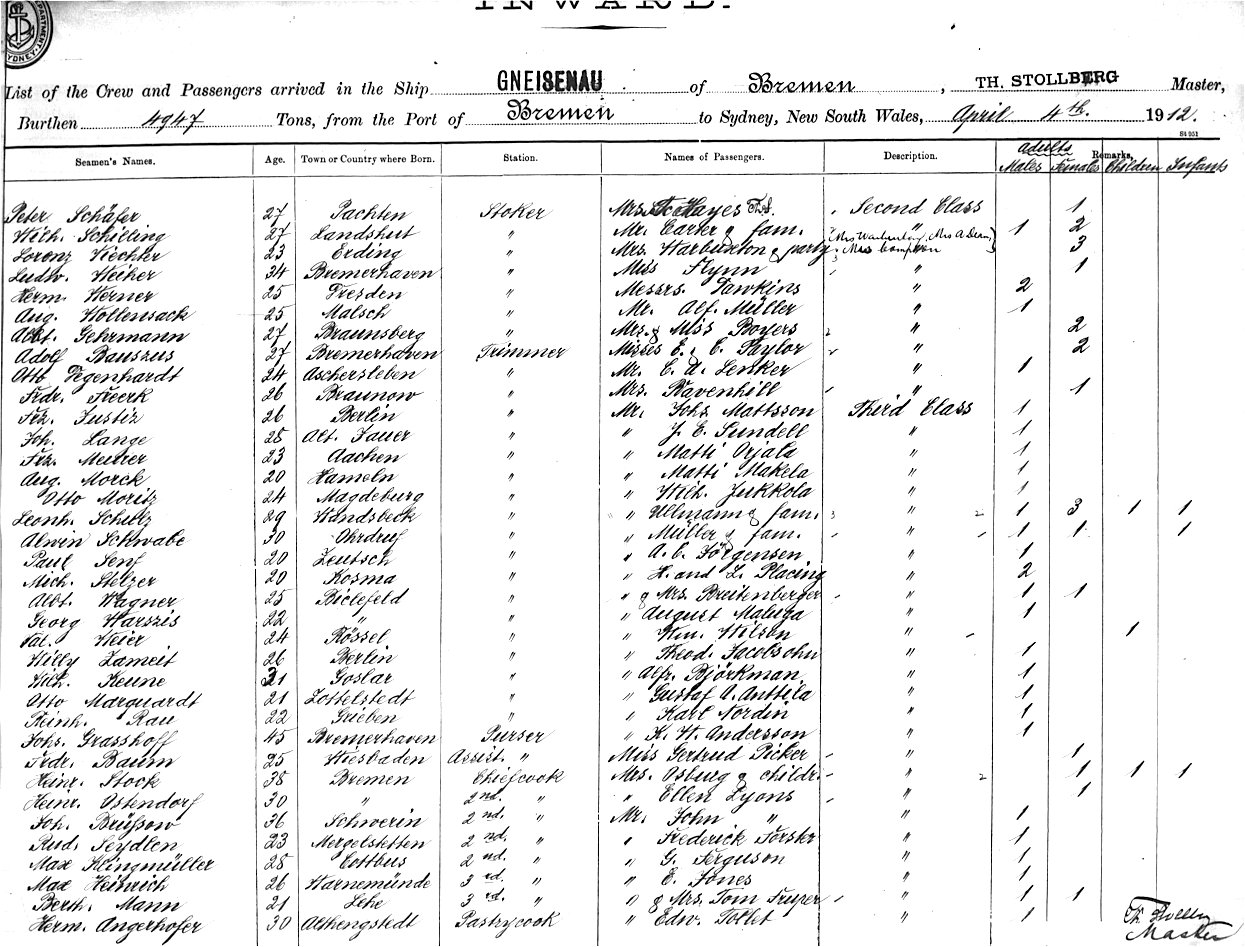 INWARD.
DEPARTMENT. SYDNEY
List of the Crew and Passengers arrived in the Ship GNEISENAU of Bremen, TH. STOLLBERG Master,
Burthen 4947 Tons, from the Port of Bremen to Sydney, New South Wales, April 4th. 1912.
St 951
Seamen's Names. Age. Town or Country where Born. Station. Names of Passengers. Description. Adults Males Females Remarks, Children Infants
Peter Schäfer 27 Pachten Stoker Mrs. Hayes Second Class 1
Wilh. Schilling 27 Landshut " Mr. Carter & fam. (Mrs Warburton, Mrs A Dean, 1 2
Lorenz Viechter 23 Erding " Mrs. Warburton & party Mrs Compton) 3
Ludw. Weiher 34 Bremerhaven " Miss Flynn " 1
Herm. Werner 25 Dresden " Messrs. Hawkins " 2
Aug. Hollensack 25 Malsch " Mr. Alf. Müller " 1
Albt. Gehrmann 27 Braunsberg " Mrs. & Miss Boyers " 2
Adolf Bauszus 27 Bremerhaven Trimmer Misses E. & C. Taylor " 2
Otto Degenhardt 24 Aschersleben " Mr. C. A. Lenker " 1
Frdr. Freerk 26 Braunow " Mrs. Bavenhill " 1
Frz. Justiz 26 Berlin " Mr. Johs. Mattsson Third Class 1
Joh. Lange 28 Alt. Jauer " " J. E. Sundell " 1
Frz. Meurer 23 Aachen " " Matti Orjala " 1
Aug. Morck 20 Hameln " " Matti Makela " 1
Otto Moritz 24 Magdeburg " " Wilh. Jukkola " 1
Leonh. Schulz 29 Wandsbeck " " Ullmann & fam. " 1 3 1 1
Alwin Schwabe 30 Ohrdruf " " Müller & fam. " 1 1 1
Paul Senf 20 Zeutsch " " A. C. Jörgensen " 1
Mich. Stelzer 20 Kosma " " H. and L. Placing " 2
Albt. Wagner 25 Bielefeld " " & Mrs. Breitenberger " 1 1
Georg Warszis 22 " " " August Maluga " 1
Val. Weier 24 Rössel " " Wm. Wilson " 1
Willy Zameit 26 Berlin " " Theod. Jacobsohn " 1
Wilh. Keune 31 Goslar " " Alfr. Björkman " 1
Otto Marquardt 21 Zottelstedt " " Gustaf A. Anttila " 1
Reinh. Rau 22 Grieben " " Karl Nordin " 1
Johs. Grasshoff 45 Bremerhaven Purser " K. W. Andersson " 1
Frdr. Baum 25 Wiesbaden Assist. " Miss Gertrud Picker " 1
Heinr. Stock 38 Bremen Chiefcook Mrs. Osburg & childr. " 1 1 1
Heinr. Ostendorf 30 " 2nd. " " Ellen Lyons " 1
Joh. Brüssow 36 Schwerin 2nd. " Mr. John " " 1
Rud. Seydlen 23 Mergelstetten 2nd. " " Frederick " 1
Max Klingmüller 28 Cottbus 2nd. " " G. Ferguson " 1
Max Heinrich 26 Warnemünde 3rd. " " E. Jones " 1
Berth. Mann 21 Lehe 3rd. " " & Mrs. Tom Fryer " 1 1
Herm. Angerhofer 30 Althengstedt Pastrycook " Edw. Tollet " 1
Th. Stollberg
Master